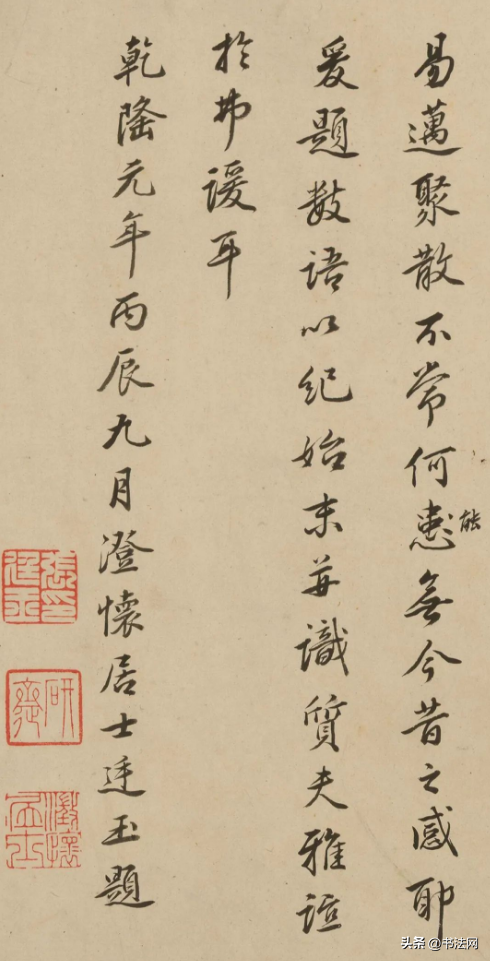 易邁聚散不常何能無今昔之感耶
爰題數語以紀始末并識質夫雅誼
於弗諼耳
乾隆元年丙辰九月澄懷居士廷玉題
張印廷玉
研齋
澄懷居士
头条 @书法网